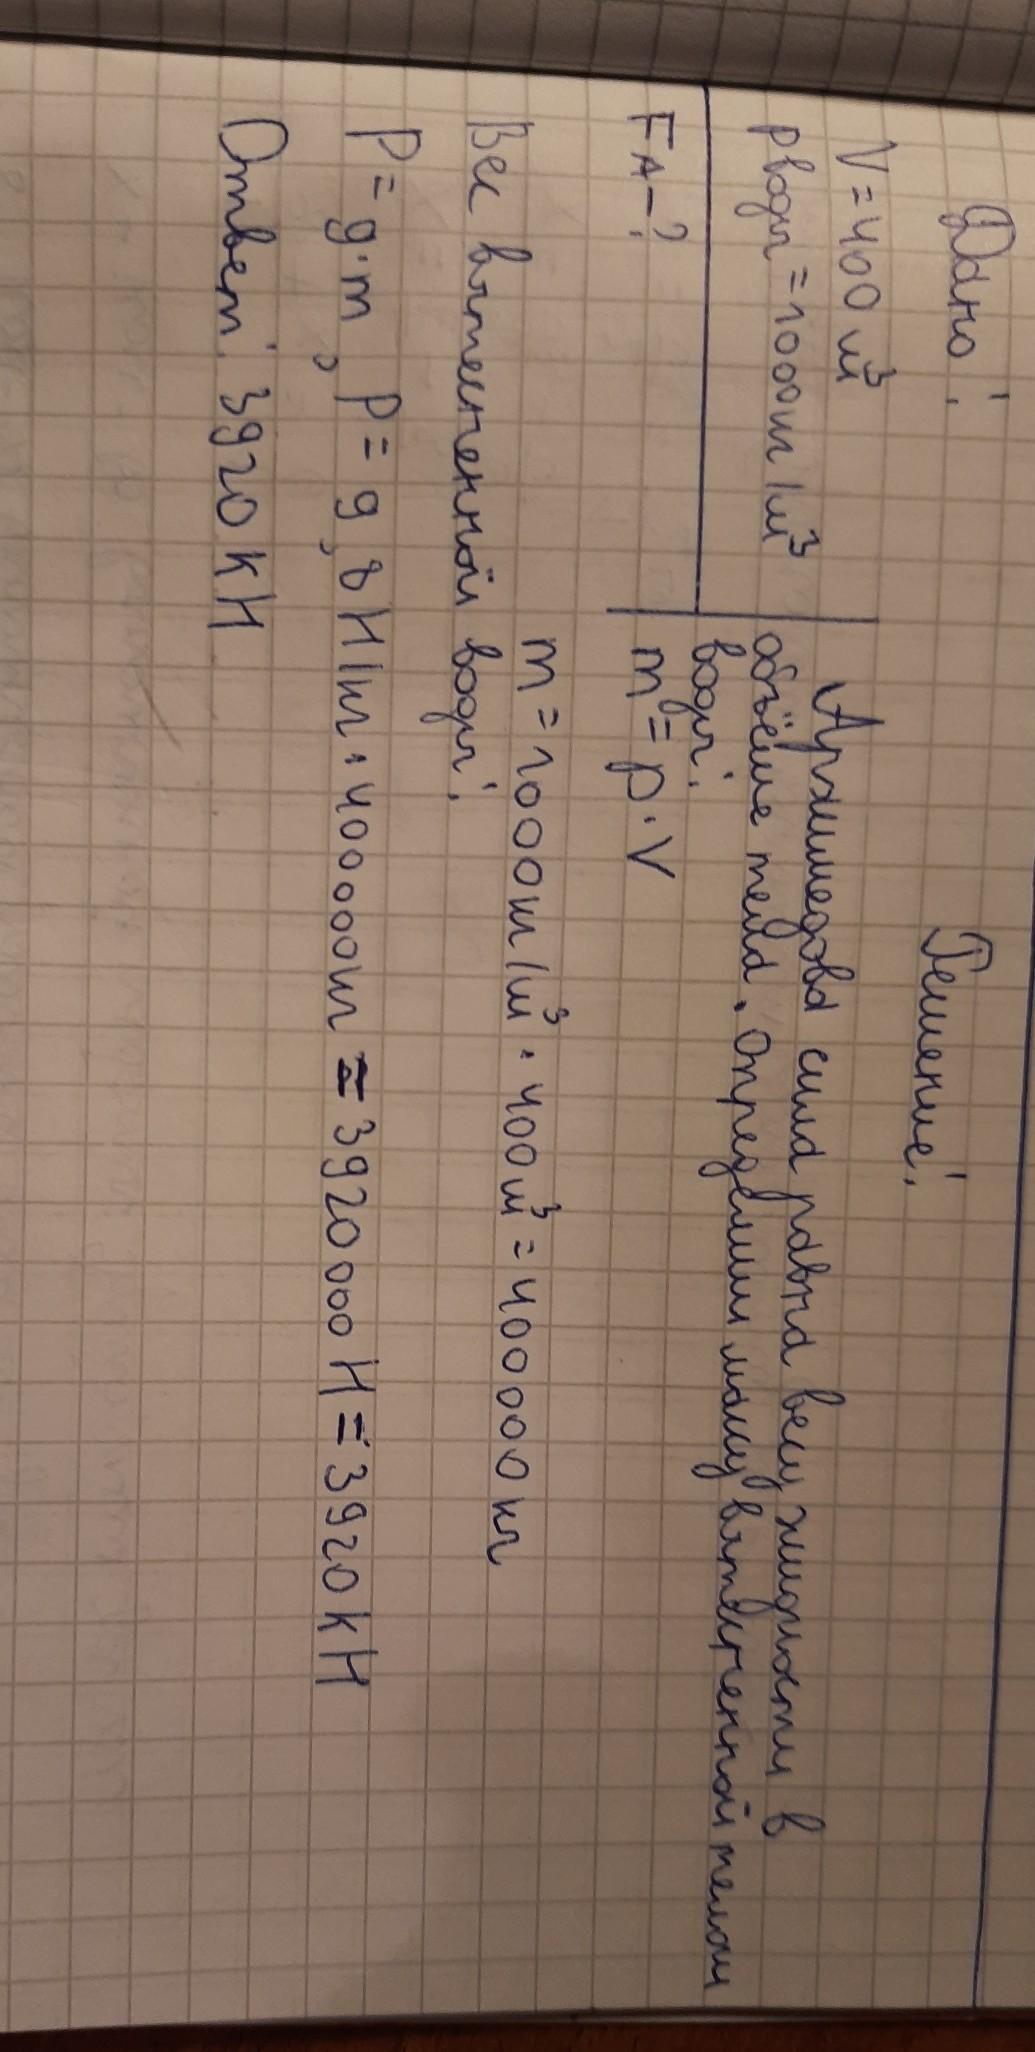 Дано:
V = 400 м³
ρ воды = 1000 кг/м³
FА - ?
Решение:
Архимедова сила равна весу жидкости в
объёме тела. Определим массу вытесненной телом
воды:
m = ρ · V
m = 1000 кг/м³ · 400 м³ = 400 000 кг
Вес вытесненной воды:
P = g · m, P = 9,8 Н/кг · 400 000 кг = 3920 000 Н = 3920 кН
Ответ: 3920 кН